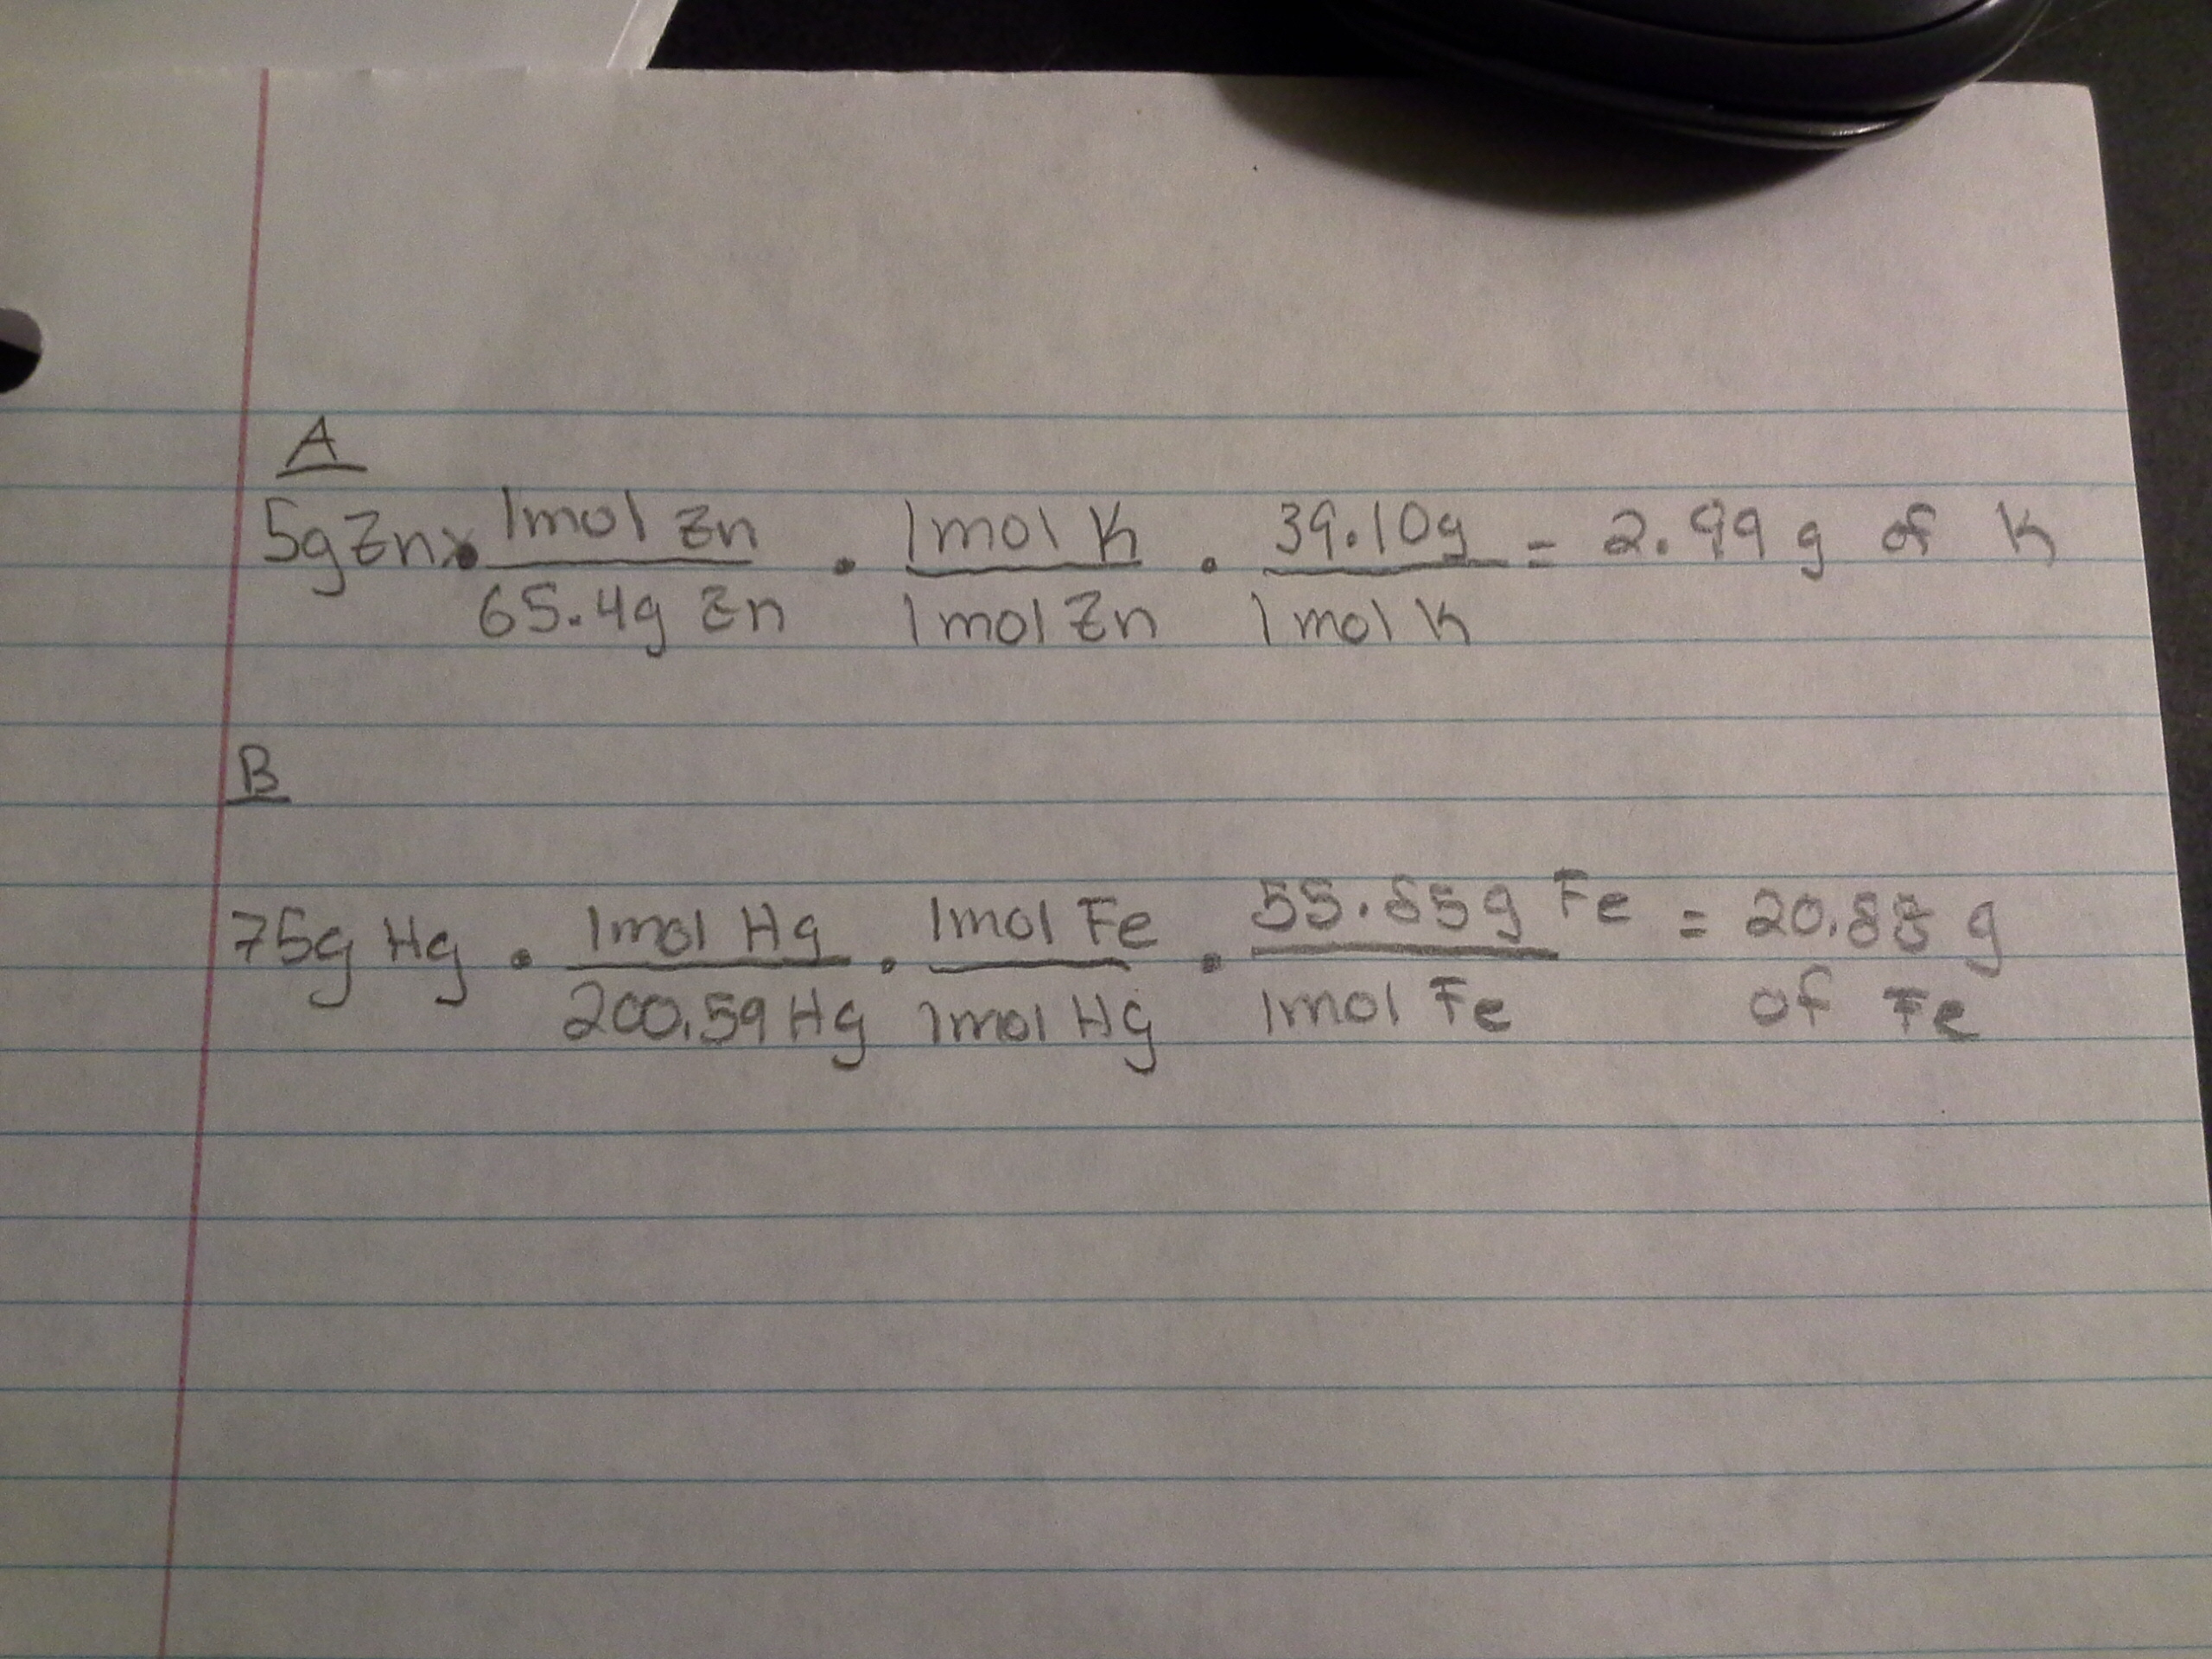 A
5gZnx• 1mol Zn / 65.4g Zn • 1mol K / 1mol Zn • 39.10g / 1mol K = 2.99 g of K
B
75g Hg • 1mol Hg / 200.59 Hg • 1mol Fe / 1mol Hg • 55.85g Fe / 1mol Fe = 20.88 g
of Fe